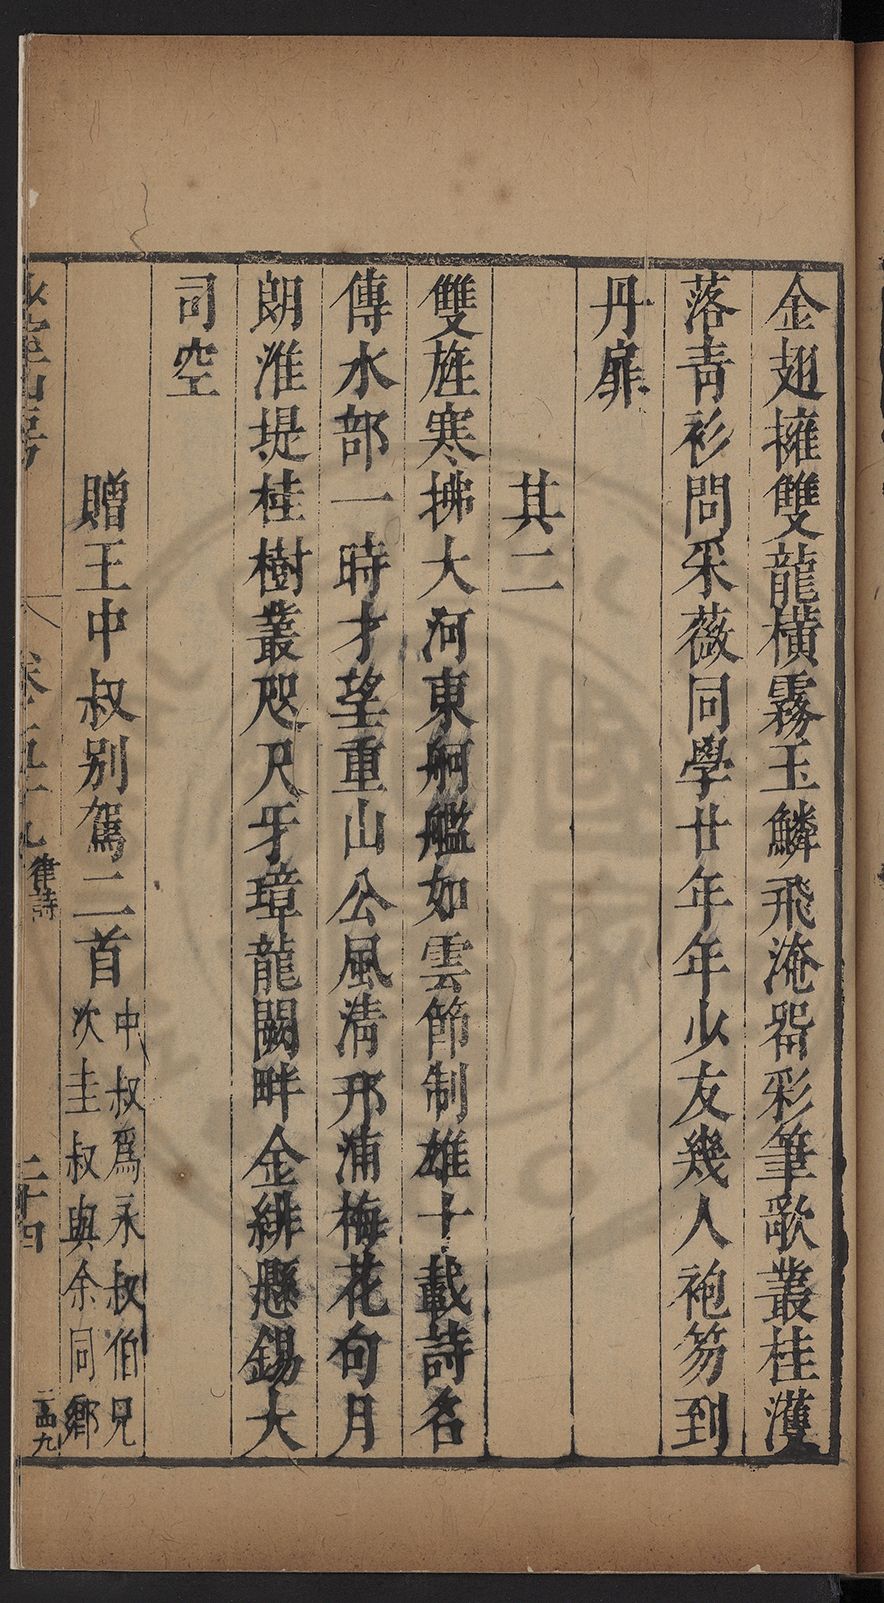 金翅擁雙龍橫霧玉鱗飛淹留彩筆歌叢桂濩
落青衫問采薇同學廿年年少友幾人袍笏到
丹扉
其二
雙旌寒拂大河東舸艦如雲節制雄十載詩名
傳水部一時才望重山公風清邗浦梅花句月
朗淮堤桂樹叢咫尺牙璋龍闕畔金緋懸錫大
司空
贈王中叔別駕二首
中叔為永叔伯兄
次圭叔與余同鄉
室山房
卷五十九
律詩
二十四